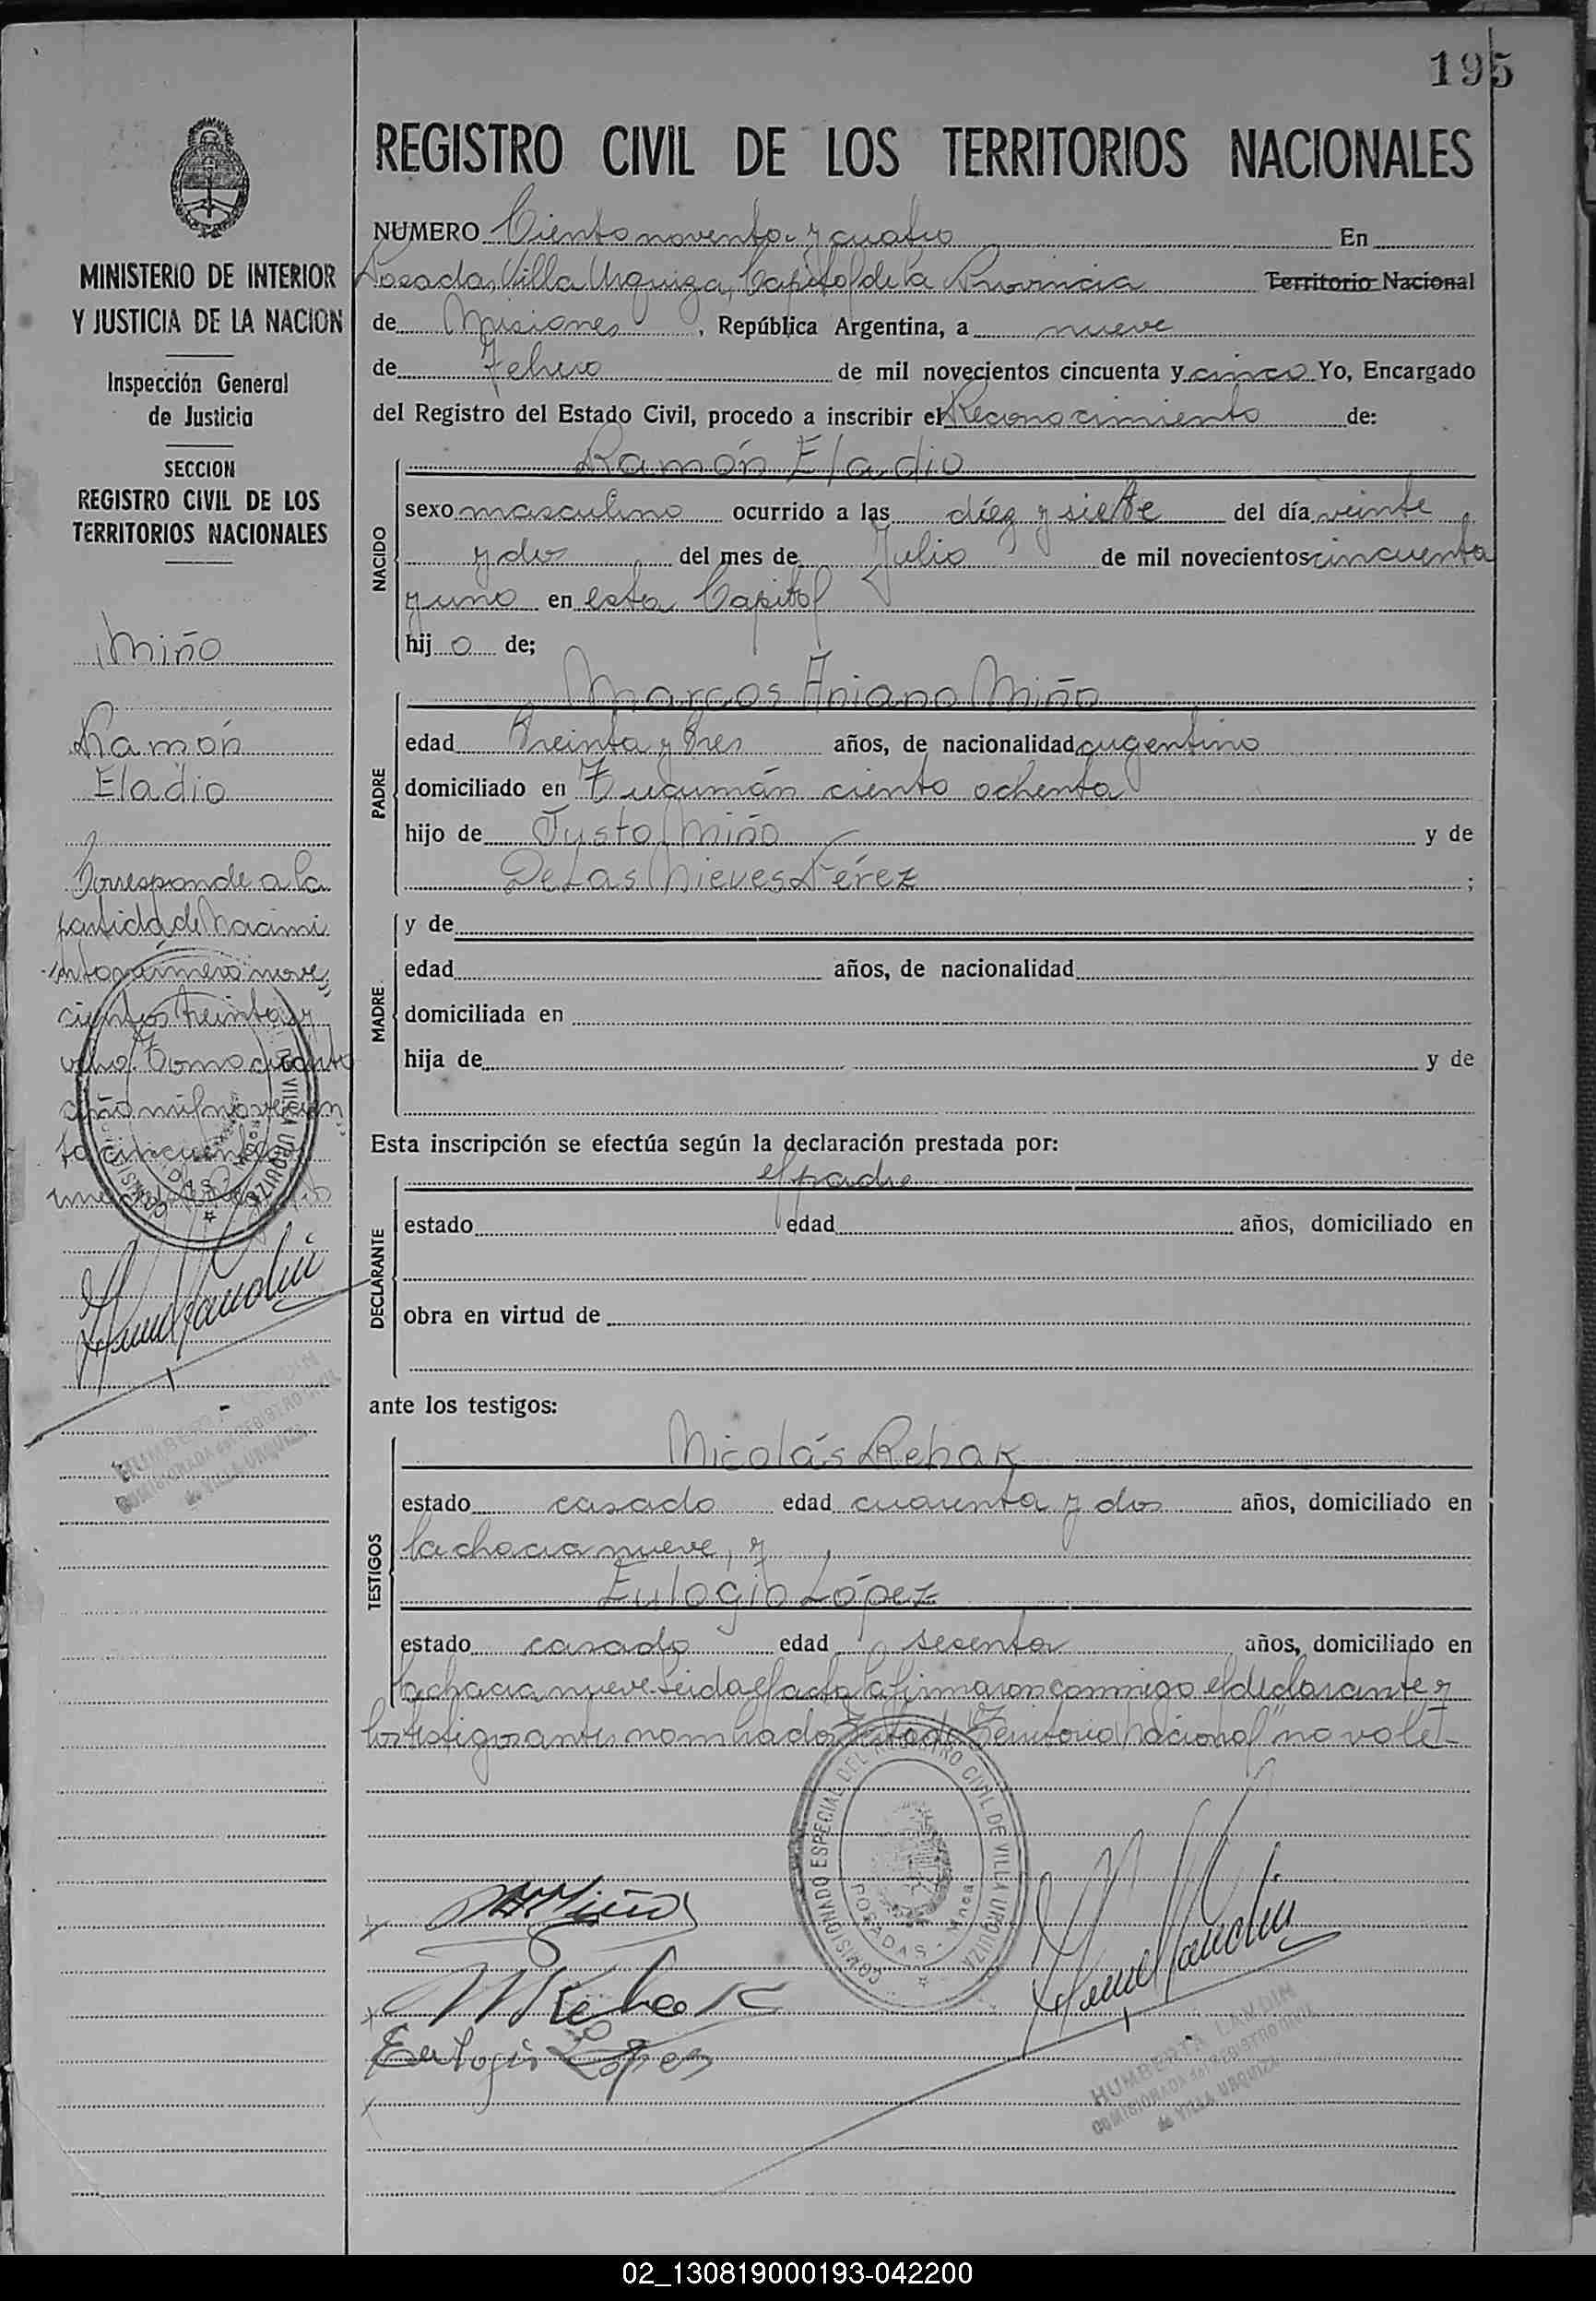 195
REGISTRO CIVIL DE LOS TERRITORIOS NACIONALES
MINISTERIO DE INTERIOR
Y JUSTICIA DE LA NACION
Inspección General
de Justicia
SECCION
REGISTRO CIVIL DE LOS
TERRITORIOS NACIONALES
Miño
Ramón
Eladio
Corresponde a la
partida de Nacimi
ento número nove
cientos treinta y
ocho. Tomo cuarto
año mil novecien
to cincuenta y
uno
NUMERO Ciento noventa y cuatro En
Posadas, Villa Urquiza, Capital de la Provincia Territorio Nacional
de Misiones, República Argentina, a nueve
de Febrero de mil novecientos cincuenta y cinco Yo, Encargado
del Registro del Estado Civil, procedo a inscribir el Reconocimiento de:
NACIDO
Ramón Eladio
sexo masculino ocurrido a las diéz y siete del día veinte
y dos del mes de Julio de mil novecientos cincuenta
y uno en esta Capital
hijo de;
PADRE
Marcos Aniano Miño
edad treinta y tres años, de nacionalidad argentino
domiciliado en Tucumán ciento ochenta
hijo de Justo Miño y de
De Las Nieves Pérez ;
MADRE
y de
edad años, de nacionalidad
domiciliada en
hija de y de
Esta inscripción se efectúa según la declaración prestada por:
DECLARANTE
el padre
estado edad años, domiciliado en
obra en virtud de
ante los testigos:
TESTIGOS
Nicolás Rebak
estado casado edad cuarenta y dos años, domiciliado en
la chacra nueve, y
Eulogio López
estado casado edad sesenta años, domiciliado en
la chacra nueve. Leida el acta la firmaron conmigo el declarante y
los testigos antes nombrados. Testado "Territorio Nacional" no vale.-
COMISIONADO ESPECIAL DEL REGISTRO CIVIL DE VILLA URQUIZA
POSADAS - Mnes.
MAMiño
NRebak
Eulogio López
HUMBERTA LANDIN
COMISIONADA del REGISTRO CIVIL
de VILLA URQUIZA
02_130819000193-042200